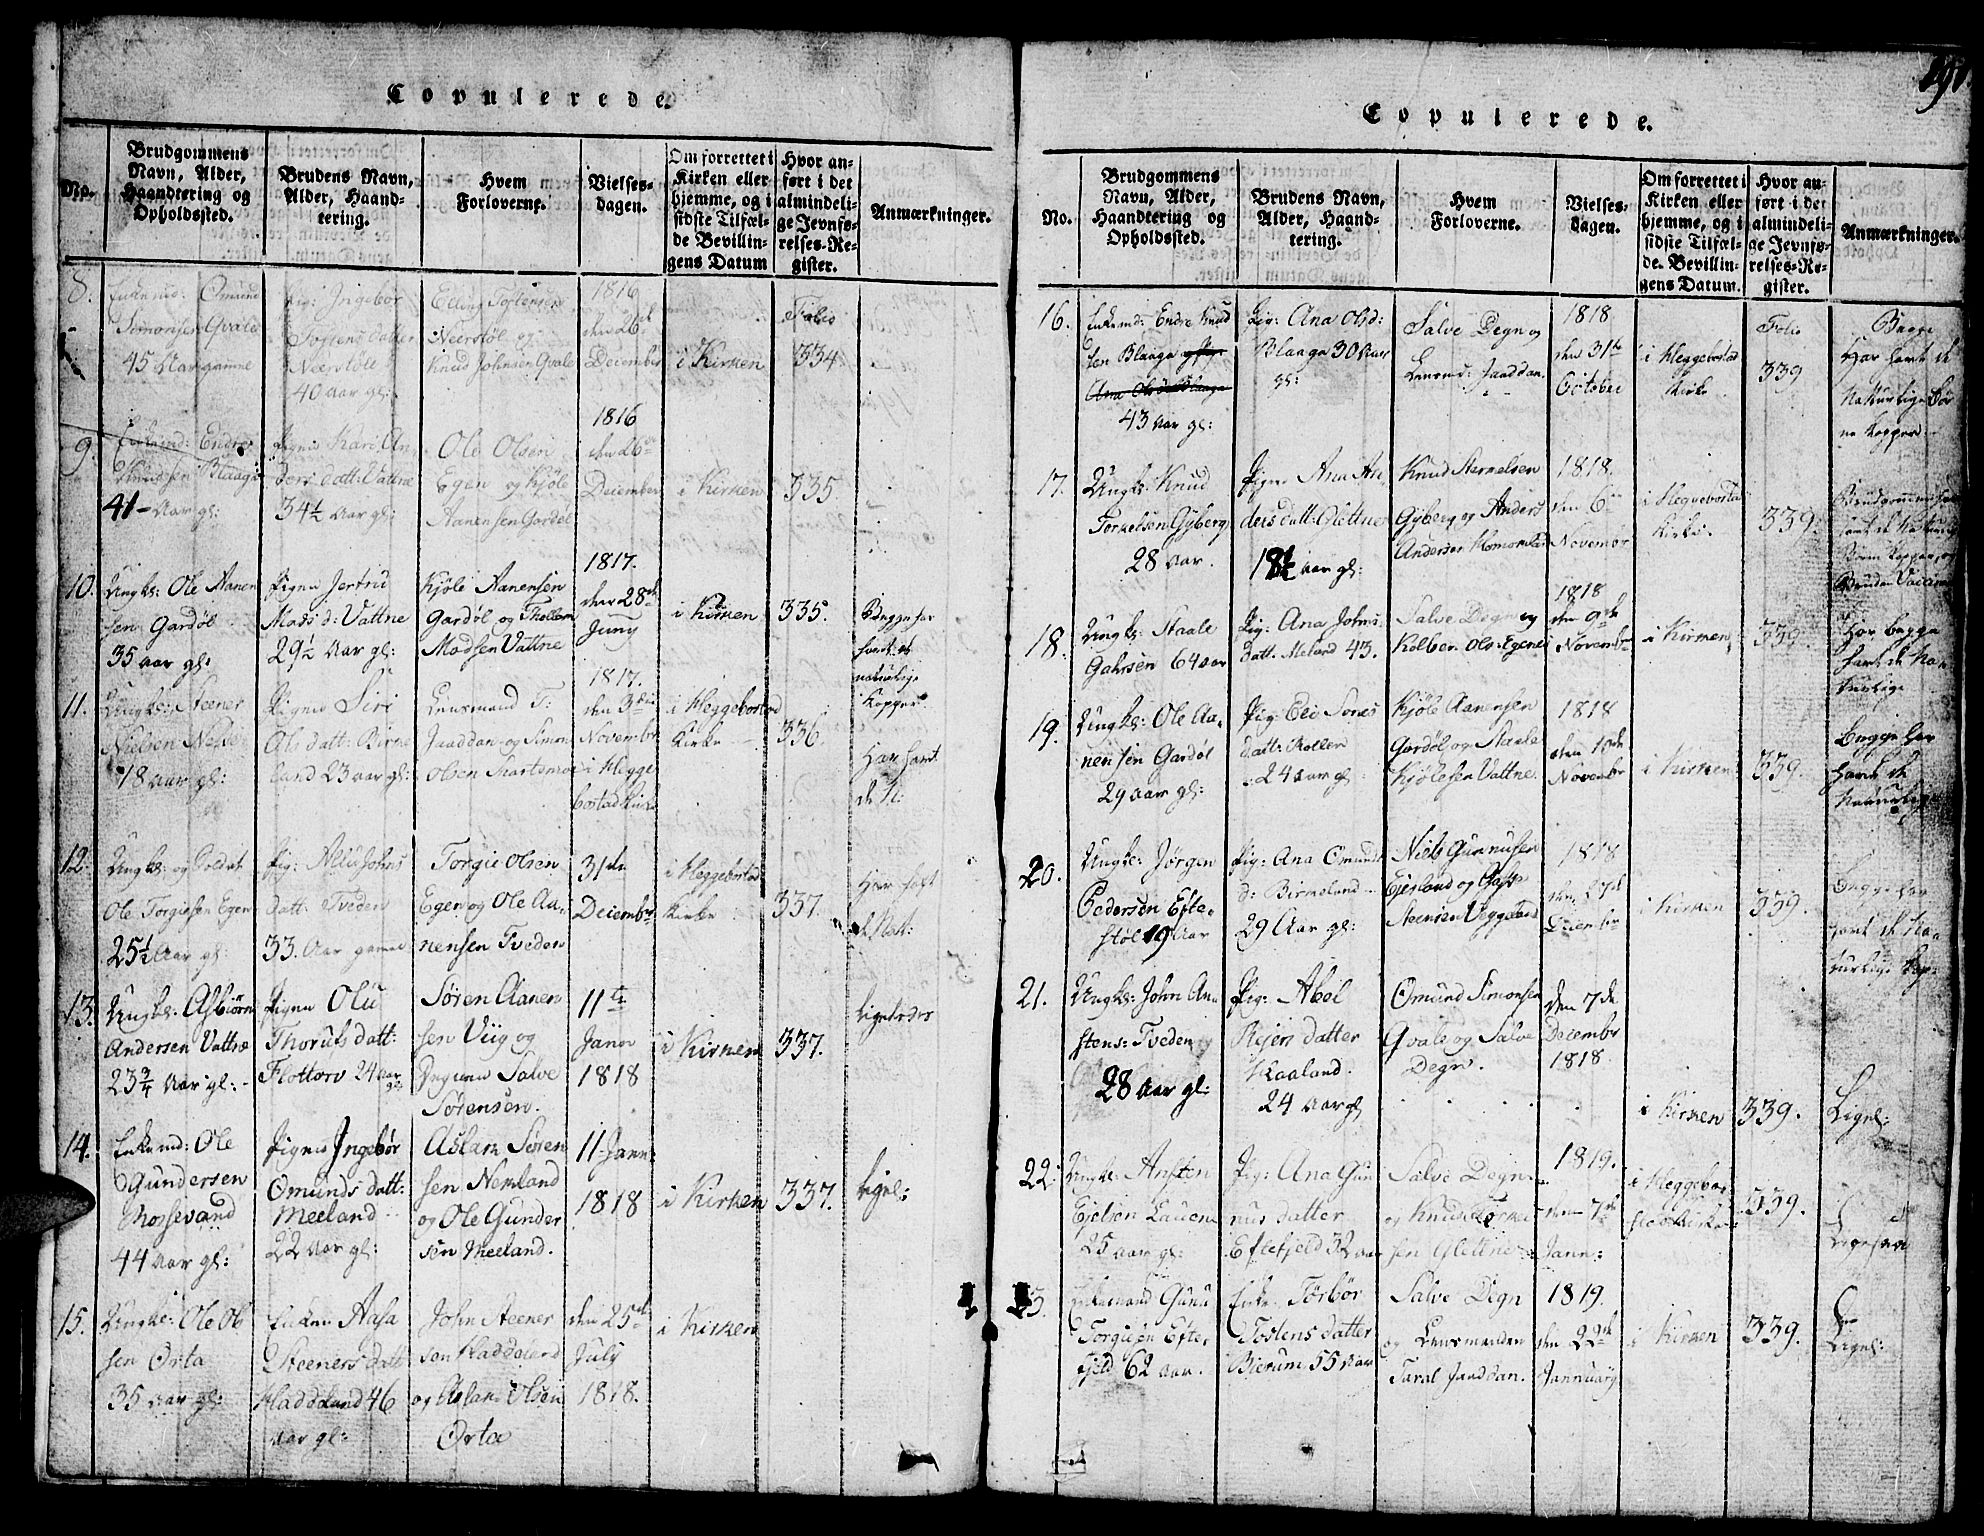 Copulerede.
No.
Brudgommens
Navn, Alder,
Haandtering og
Opholdssted.
Brudens Navn,
Alder, Haand-
tering.
Hvem
Forloverne.
Vielses-
dagen.
Om forrettet i
Kirken eller
hjemme, og i
sidste Tilfæl-
de Bevillin-
gens Datum
Hvor an-
ført i det
almindeli-
ge Jevnfø-
relses-Re-
gister.
Anmærkninger.
8.
Enkemd: Omund
Simonsen Qvale
45 Aar gamme
Pig: Ingebor
Tostens datter
Neerstøle
40 Aar gl:
Elling Tostensen
Neerstøl og
Knud Johnsen Qvale
1816
den 26de
December
i Kirken
Folio
334
9.
Enkemd: Endre
Knudsen Blaaga
41 Aar gl:
Pigen Kari An
ders datt: Vattne
34½ Aar gl:
Ole Olsen
Egen og Kjøle
Aanensen Gardøl
1816
den 26de
December
i Kirken
335
10.
Ungk: Ole Aanen
sen Gardøl
35 aar gl:
Pigen Jertrud
Mads d: Vattne
29½ Aar gl:
Kjøle Aanensen
Gardøl og Thollem
Madsen Vattne
1817.
den 28de
Juny
i Kirken
335.
Begge har
havt de
naturlige
Kopper
11.
Ungk: Steener
Nielsen
18 aar gl:
Pigen Siri
Ols datt: Birke
land 23 aar gl:
Lensmand T:
Jaaddan og Simon
Olsen
1817.
den 3die
Novembr
i Hegge
bostad Kirke
i Heggebostad
Kirke
336.
Har havt
de N:
12.
Ungk: og Soldat
Ole Torgiesen Egen
25½ Aar gl:
Pig: Johns
datt: Tveden
33. Aar gamel
Torgie Olsen
Egen og Ole Aa-
nensen Tveden
31te
Decembr
i Heggebostad
Kirke
337.
Har haft
13.
Ungk: Asbiørn
Andersen Vattne
23¾ Aar gl:
Pigen Olu
Thorufs datt:
Flottorv 24 aar
gl:
Søren Aanen
sen Viig og
Salve
Sørensen.
11te
Janu
1818
i Kirken
337.
Ligeledes
14.
Enkemd: Ole
Gundersen
Mossevand
44 Aar gl:
Pigen Ingebør
Omunds datt:
Meeland
22 Aar gl:
Aslam Søren
sen Nemland
og Ole Gunder
sen Meeland.
11 Jann:
1818
i Kirken
337.
Ligel:
15.
Ungk: Ole Ol
sen Orta
35 aar gl:
Enken Aasa
Steeners datt
Haddeland 46
Aar gl:
John Steener
sen Haddeland
og Aslam Olsen
Orta
den 25de
July
1818.
i Kirken
Copulerede.
191
No.
Brudgommens
Navn, Alder,
Haandtering og
Opholdssted.
Brudens Navn,
Alder, Haand-
tering.
Hvem
Forloverne.
Vielses-
dagen.
Om forrettet i
Kirken eller
hjemme, og i
sidste Tilfæl-
de Bevillin-
gens Datum.
Hvor an-
ført i det
almindeli-
ge Jevnfø-
relses-Re-
gister.
Anmærkninger.
16.
Enkemd: Endre Knud
sen Blaaga
43 Aar gl:
Pig: Ana Olsd:
Blaaga 30 Aar
gl:
Salve Degn og
Lensmd: Jaaddan.
1818
den 31te
October
i Heggebostad
Kirke
Folio
339
Begge
Har havt de
Naturlige Bør
ne kopper
17.
Ungk: Knud
Torkelsen Gyberg
28 Aar.
Pigen Ana An
ders datt: Glettne
18½ aar gl:
Knud Sternelsen
Gyberg og Anders
Andersen Homestad
1818.
den 6te
Novembr
i Heggebostad
Kirke
339.
Brudgommen har
havt de Naturlig
Børne kopper, og
Bruden Vaccine
18.
Ungk: Staale
Gahrsen 64 aar
Pig: Ana Johns
datt: Meland 43.
Salve Degn og
Kolben Ols: Egenes
1818
den 9de
Novembr
i Kirken
339.
Har begge
havt de Na-
turlige
19.
Ungk: Ole Aa-
nensen Gardøl
29 aar gl:
Pig: Eli Tores
datt: Kollen
24 aar gl
Kjøle Aanensen
Gardøl og Staale
Kjølesen Vattne.
1818
den 10de
Novembr
i Kirken
339.
Begge har
havt de
Naturlig
20.
Ungk: Jørgen
Pedersen Efte-
støl 19 Aar
Pig: Ana Omunds
d: Birkeland
29 Aar gl:
Niels Gunnusen
Eierland og
Steensen
1818
den 27de
Decembr
i Kirken
339.
Begge har
havt de Na-
turlige kop:
21.
Ungk: John An
stens: Tveden
28 Aar gl:
Pig: Abel
Reiers datter
Kaaland.
24 aar gl
Omund Simonsen
Qvale og Salve
Degn.
den 7de
Decembr
1818.
i Kirken
339.
Ligel:
22.
Ungk: Ansten
Ejelsen Lauen
25 aar gl:
Pig: Ana Gun
nus datter
Eftefjeld 32 aar
Salve Degn
og Knud Torkel
sen Glettne
1819.
den 7de
Jann:
i Heggebo
stad Kirke
339.
Ligesaa
23.
Enkemand Gunu
Torgiesen Efte
fjeld 62 aar.
Enke: Torbør
Tostens datter
Bierum 55 Aar
Salve Degn
og Lensmanden
Taral Jaaddan.
1819.
den 22de
Jannuary
i Kirken
339.
Ligel: